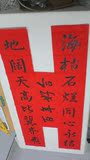 海枯石爛同心永结
地阔天高比翼齐飞